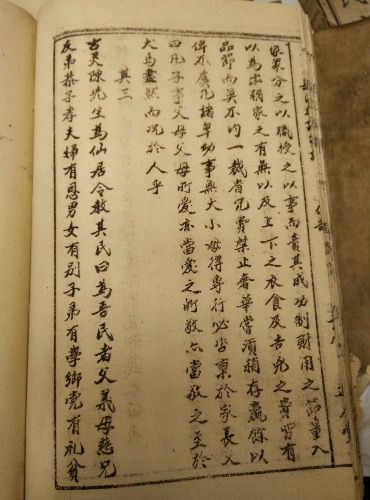 家衆分之以職授之以事而責其成功制財用之節量入
以為出稱家之有無以及上下之衣食及吉凶之費皆有
品節而莫不均一裁省冗費禁止奢華當須稍存贏餘以
俻不虞凡諸卑幼事無大小毋得專行必咨稟於家長又
曰凡子事父母父母所愛亦當愛之所敬亦當敬之至於
犬馬盡然而况於人乎
其三
古灵陳先生為仙居令教其民曰為吾民者父義母慈兄
友弟恭子孝夫婦有恩男女有别子弟有學鄉党有礼貧